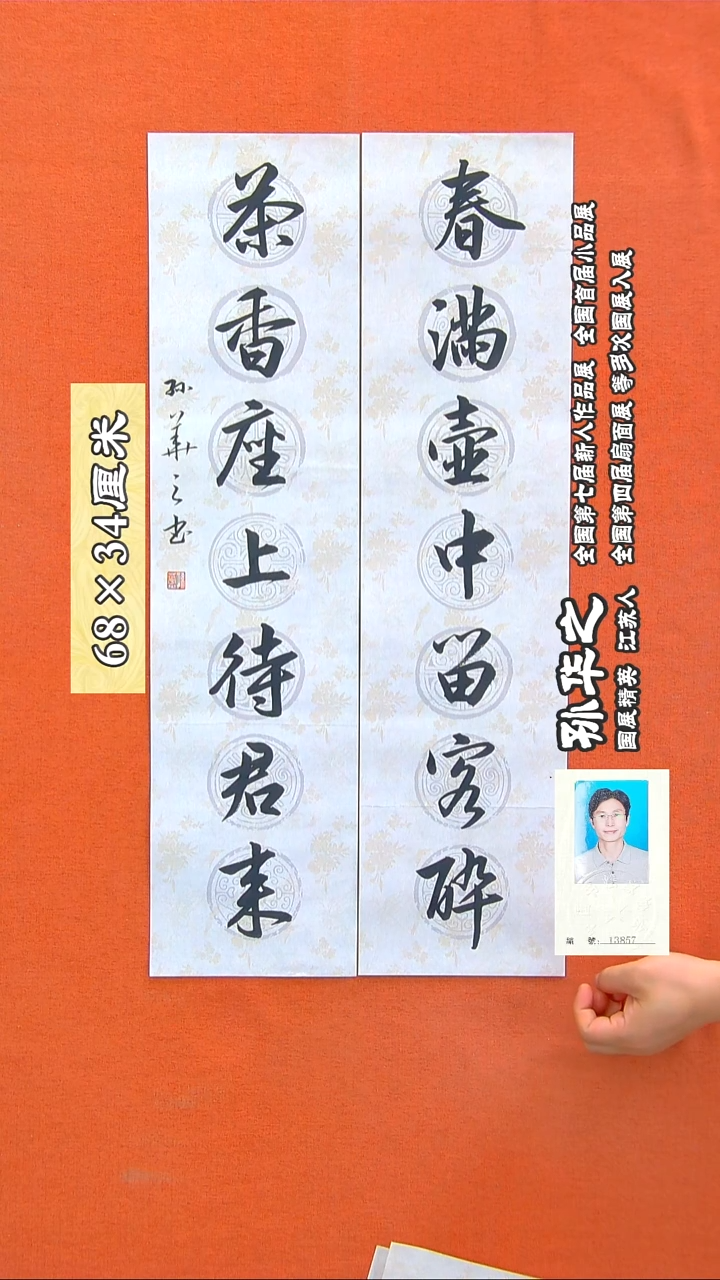 春满壶中留客醉
茶香座上待君来
孙华之书
68×34厘米
孙华之
国展精英 江苏人
全国第七届新人作品展 全国首届小品展
全国第四届扇面展 等多次国展入展
編 號: 13857